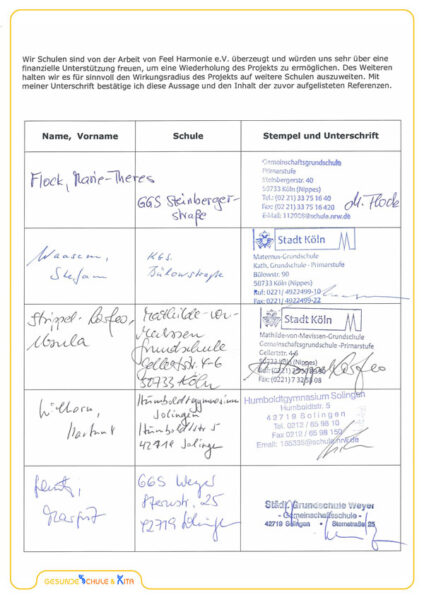 Wir Schulen sind von der Arbeit von Feel Harmonie e.V. überzeugt und würden uns sehr über eine
finanzielle Unterstützung freuen, um eine Wiederholung des Projekts zu ermöglichen. Des Weiteren
halten wir es für sinnvoll den Wirkungsradius des Projekts auf weitere Schulen auszuweiten. Mit
meiner Unterschrift bestätige ich diese Aussage und den Inhalt der zuvor aufgelisteten Referenzen.
Name, Vorname
Schule
Stempel und Unterschrift
Flock, Marie-Theres
GGS Steinberger-
straße
Gemeinschaftsgrundschule
Primarstufe
Steinbergerstr. 40
50733 Köln (Nippes)
Tel.: (02 21) 33 75 16 40
Fax: (02 21) 33 75 16 420
E-Mail: 112008@schule.nrw.de
M. Flock
Stefan
KGS.
Bülowstraße
Stadt Köln
Maternus-Grundschule
Kath. Grundschule - Primarstufe
Bülowstr. 90
50733 Köln (Nippes)
Ruf: 0221/ 4922499-10
Fax: 0221/ 4922499-22
Ursula
Mathilde-von-
Mevissen
Grundschule
Gellertstr. 4-6
50733 Köln
Stadt Köln
Mathilde-von-Mevissen-Grundschule
Gemeinschaftsgrundschule -Primarstufe
Gellertstr. 4-6
(Nippes)
Hartmut
Humboldtgymnasium
Solingen
Humboldtstr 5
42719 Solingen
Humboldtgymnasium Solingen
Humboldtstr. 5
42719 Solingen
Tel. 0212 / 65 98 10
Fax 0212 / 65 98 150
Margrit
GGS Weyer
Sternstr. 25
42719 Solingen
Städt. Grundschule Weyer
- Gemeinschaftsschule -
42719 Solingen - Sternstraße 25
GESUNDE SCHULE & KITA